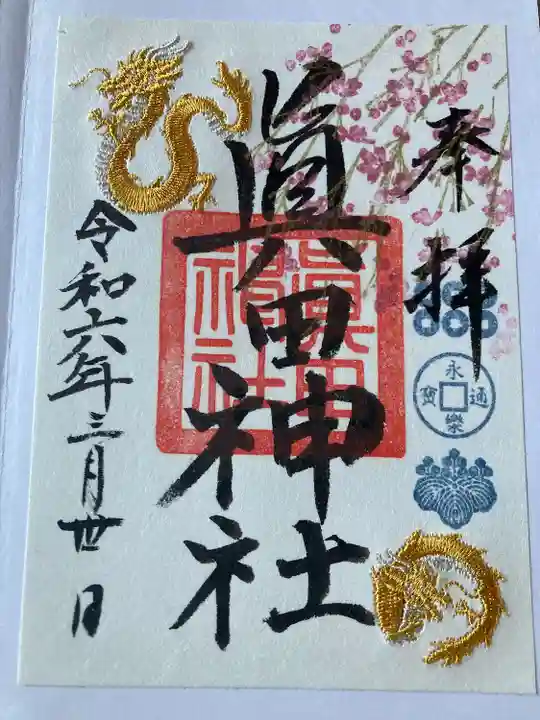 奉拝
永樂通寳
眞田神社
眞田神社
令和六年三月卅日